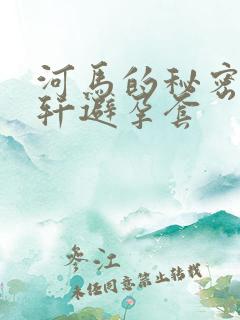 河马的秘密
轩避孕套
参江
未经同意禁止转载